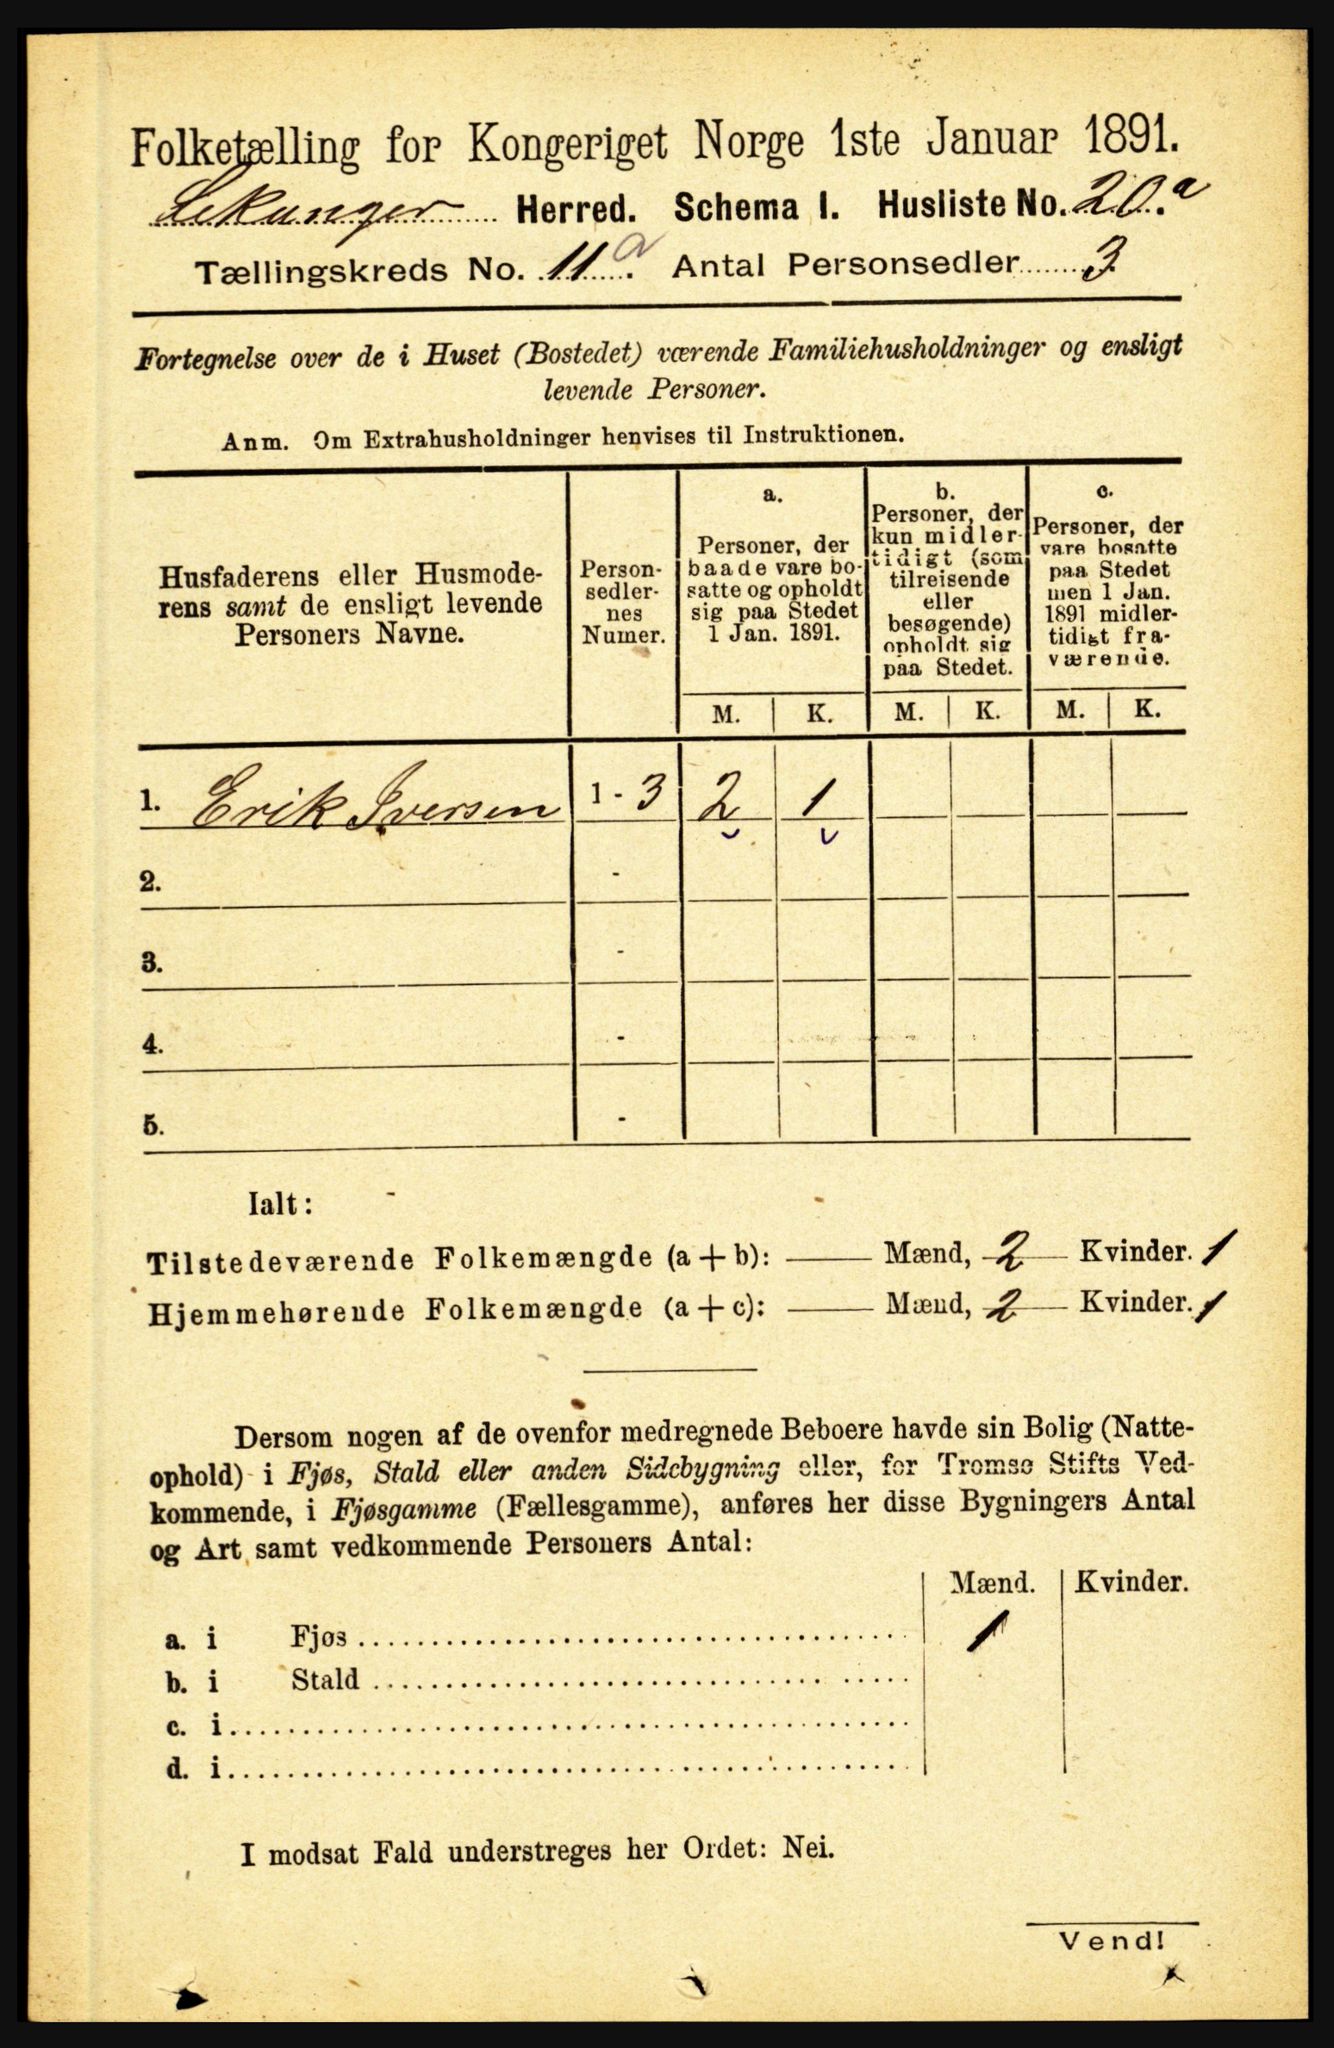 Folketælling for Kongeriget Norge 1ste Januar 1891.
Lekanger Herred. Schema I. Husliste No. 20.a
Tællingskreds No. 11 a. Antal Personsedler 3
Fortegnelse over de i Huset (Bostedet) værende Familiehusholdninger og ensligt
levende Personer.
Anm. Om Extrahusholdninger henvises til Instruktionen.
Husfaderens eller Husmode-
rens samt de ensligt levende
Personers Navne.
Person-
sedler-
nes
Numer.
a.
Personer, der
baade vare bo-
satte og opholdt
sig paa Stedet
1 Jan. 1891.
b.
Personer, der
kun midler-
tidigt (som
tilreisende
eller
besøgende)
opholdt sig
paa Stedet.
c.
Personer, der
vare bosatte
paa Stedet
men 1 Jan.
1891 midler-
tidigt fra-
værende.
M. K. M. K. M. K.
1. Erik Iversen 1 - 3 2 1
2. -
3. -
4. -
5. -
Ialt:
Tilstedeværende Folkemængde (a + b): Mænd, 2 Kvinder. 1
Hjemmehørende Folkemængde (a + c): Mænd, 2 Kvinder. 1
Dersom nogen af de ovenfor medregnede Beboere havde sin Bolig (Natte-
ophold) i Fjøs, Stald eller anden Sidebygning eller, for Tromsø Stifts Ved-
kommende, i Fjøsgamme (Fællesgamme), anføres her disse Bygningers Antal
og Art samt vedkommende Personers Antal:
Mænd. Kvinder.
a. i Fjøs 1
b. i Stald
c. i
d. i
I modsat Fald understreges her Ordet: Nei.
Vend!